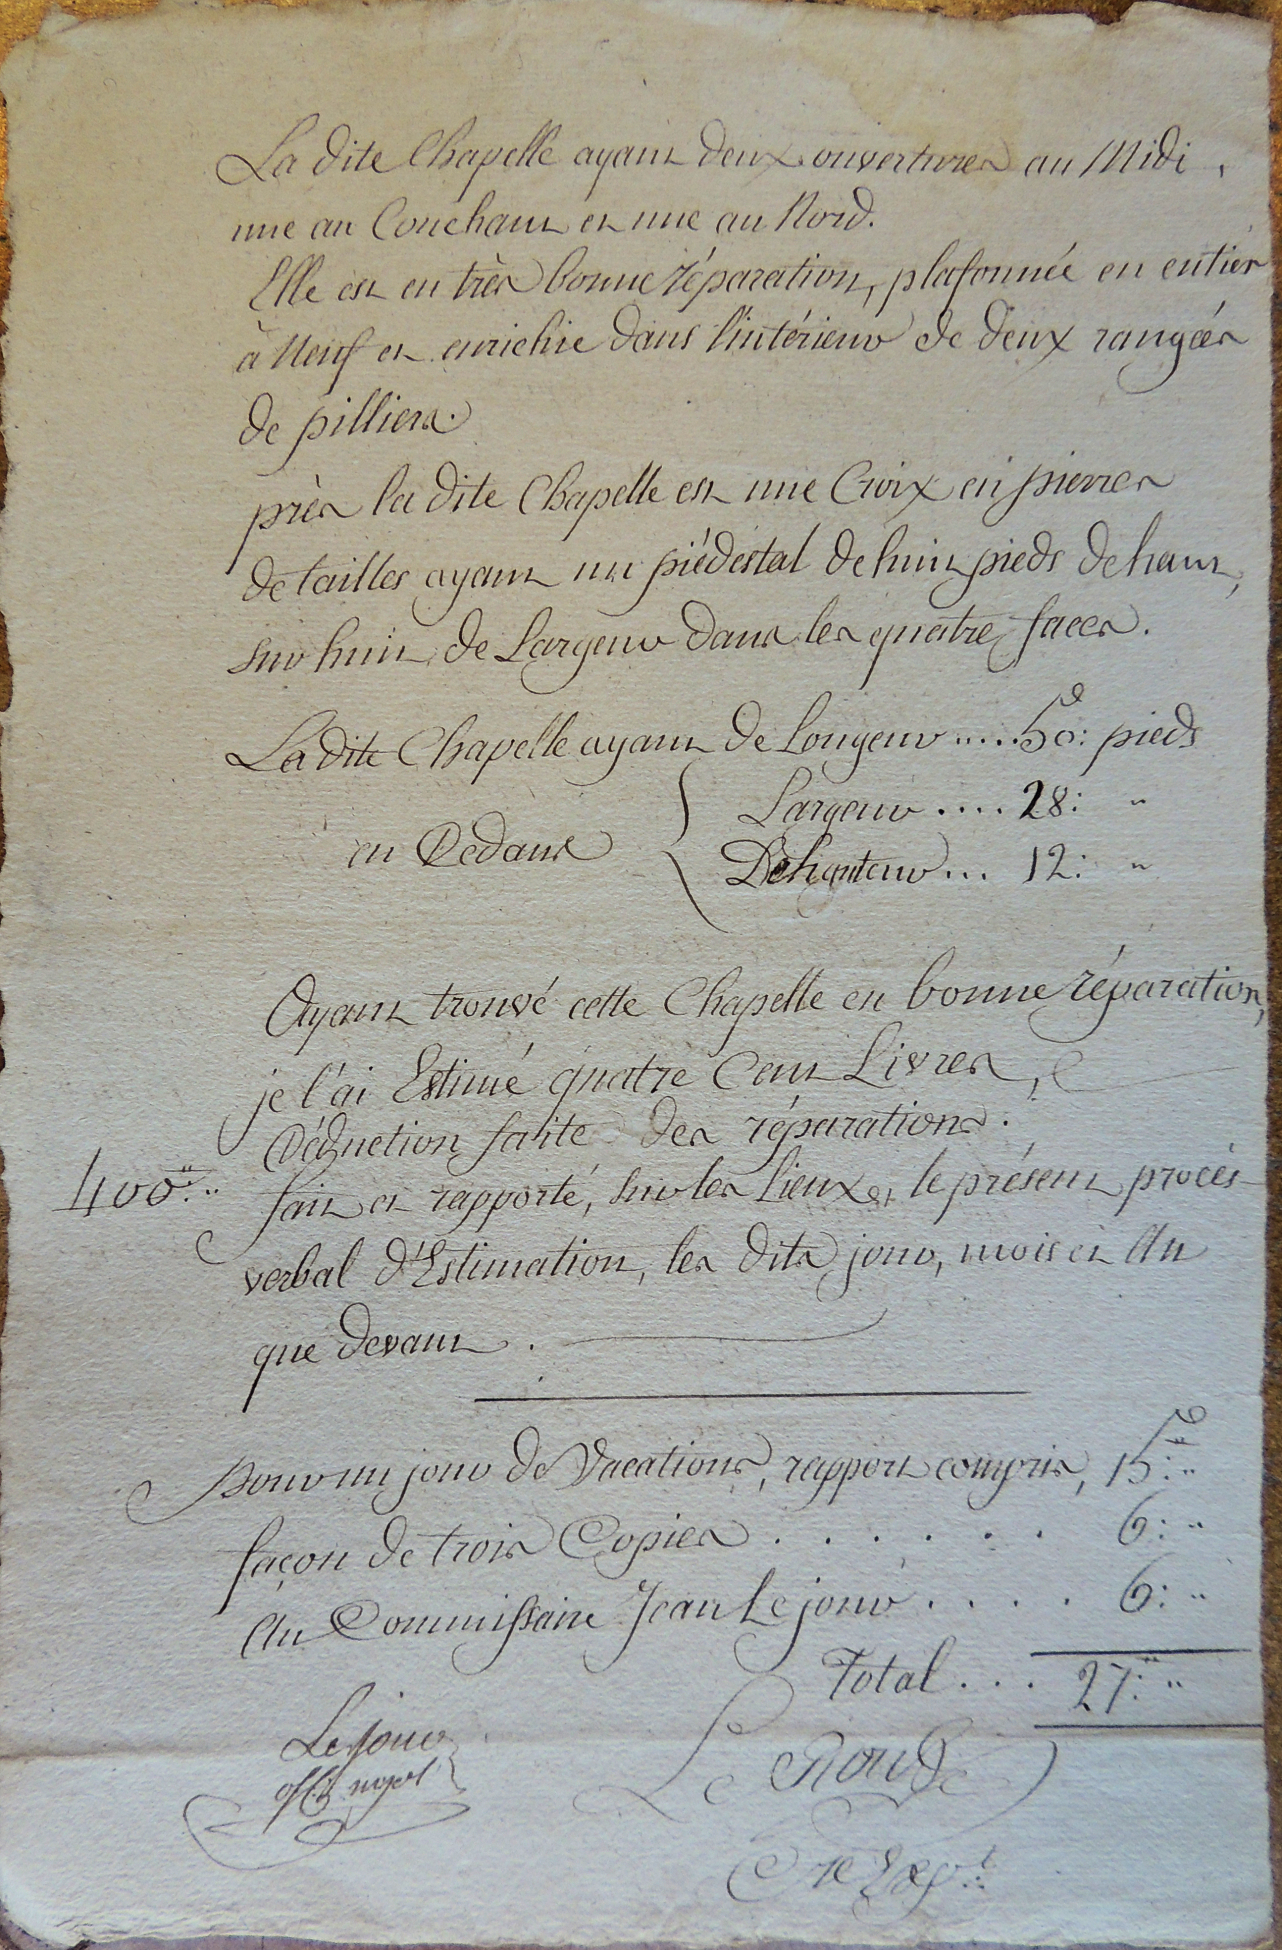 La dite Chapelle ayant deux ouvertures au Midi,
une au Couchant et une au Nord.
Elle est en très bonne réparation, plafonnée en entier
à Neuf et enrichie dans l'intérieur de deux rangées
de pilliers.
près la dite Chapelle est une Croix en pierres
de tailles ayant un piédestal de huit pieds de haut,
sur huit de Largeur dans les quatre faces.
La dite Chapelle ayant de Longeur ..... 50: pieds
Largeur .... 28: "
en Dedans
De hauteur ... 12: "
Ayant trouvé cette Chapelle en bonne réparation,
je l'ai Estimé quatre Cent Livres,
Déduction faite des réparations.
400:"
fait et rapporté, sur les Lieux, le présent procès
verbal d'Estimation, les dits jour, mois et An
que devant.
Pour un jour de Vacations, rapport compris, 15:"
façon de trois Copies . . . . . . 6:"
Au Commissaire Jean Le jour . . . . 6:"
Total ... 27:"
Le jour
off. m
Le